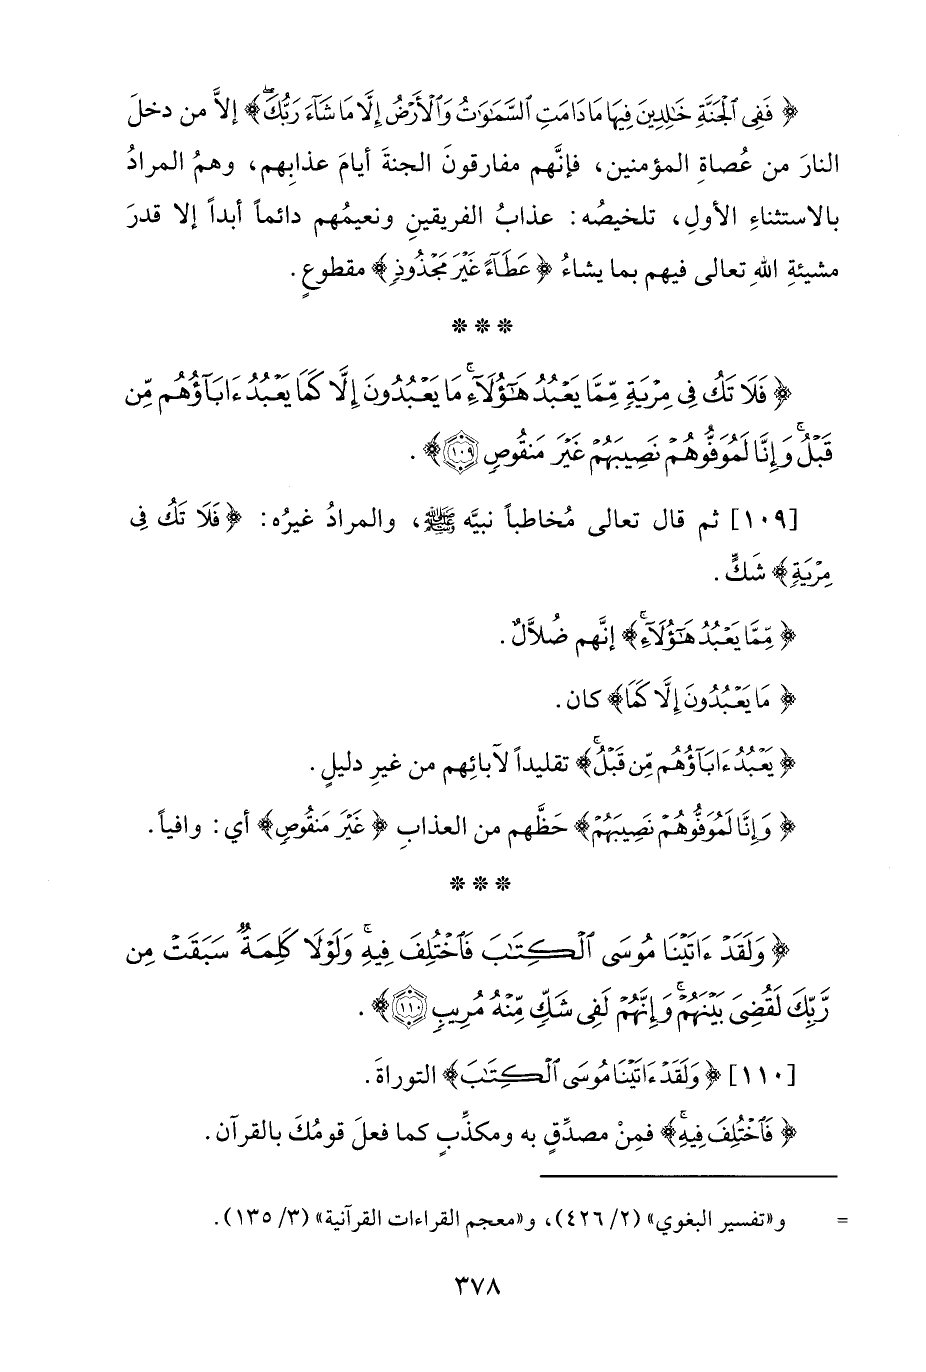 ﴿ فَفِي ٱلْجَنَّةِ خَٰلِدِينَ فِيهَا مَا دَامَتِ ٱلسَّمَٰوَٰتُ وَٱلْأَرْضُ إِلَّا مَا شَآءَ رَبُّكَ ۖ ﴾ إلاَّ من دخلَ
النارَ من عُصاةِ المؤمنين، فإنَّهم مفارقونَ الجنةَ أيامَ عذابِهم، وهمُ المرادُ
بالاستثناءِ الأولِ، تلخيصُه: عذابُ الفريقينِ ونعيمُهم دائماً أبداً إلا قدرَ
مشيئةِ اللهِ تعالى فيهم بما يشاءُ ﴿ عَطَآءً غَيْرَ مَجْذُوذٍ ﴾ مقطوعٍ.
* * *
﴿ فَلَا تَكُ فِي مِرْيَةٍ مِّمَّا يَعْبُدُ هَٰٓؤُلَآءِ ۚ مَا يَعْبُدُونَ إِلَّا كَمَا يَعْبُدُ ءَابَآؤُهُم مِّن
قَبْلُ ۚ وَإِنَّا لَمُوَفُّوهُمْ نَصِيبَهُمْ غَيْرَ مَنقُوصٍ (١٠٩) ﴾.
[١٠٩] ثم قال تعالى مُخاطباً نبيَّه ﷺ، والمرادُ غيرُه: ﴿ فَلَا تَكُ فِي
مِرْيَةٍ ﴾ شَكٍّ.
﴿ مِّمَّا يَعْبُدُ هَٰٓؤُلَآءِ ۚ ﴾ إنَّهم ضُلاَّلٌ.
﴿ مَا يَعْبُدُونَ إِلَّا كَمَا ﴾ كان.
﴿ يَعْبُدُ ءَابَآؤُهُم مِّن قَبْلُ ۚ ﴾ تقليداً لآبائِهم من غيرِ دليلٍ.
﴿ وَإِنَّا لَمُوَفُّوهُمْ نَصِيبَهُمْ ﴾ حَظَّهم من العذابِ ﴿ غَيْرَ مَنقُوصٍ ﴾ أي: وافياً.
* * *
﴿ وَلَقَدْ ءَاتَيْنَا مُوسَى ٱلْكِتَٰبَ فَٱخْتُلِفَ فِيهِ ۚ وَلَوْلَا كَلِمَةٌ سَبَقَتْ مِن
رَّبِّكَ لَقُضِيَ بَيْنَهُمْ ۚ وَإِنَّهُمْ لَفِي شَكٍّ مِّنْهُ مُرِيبٍ (١١٠) ﴾.
[١١٠] ﴿ وَلَقَدْ ءَاتَيْنَا مُوسَى ٱلْكِتَٰبَ ﴾ التوراةَ.
﴿ فَٱخْتُلِفَ فِيهِ ۚ ﴾ فمِنْ مصدِّقٍ به ومكذِّبٍ كما فعلَ قومُكَ بالقرآن.
= و«تفسير البغوي» (٢/ ٤٢٦)، و«معجم القراءات القرآنية» (٣/ ١٣٥).
٣٧٨